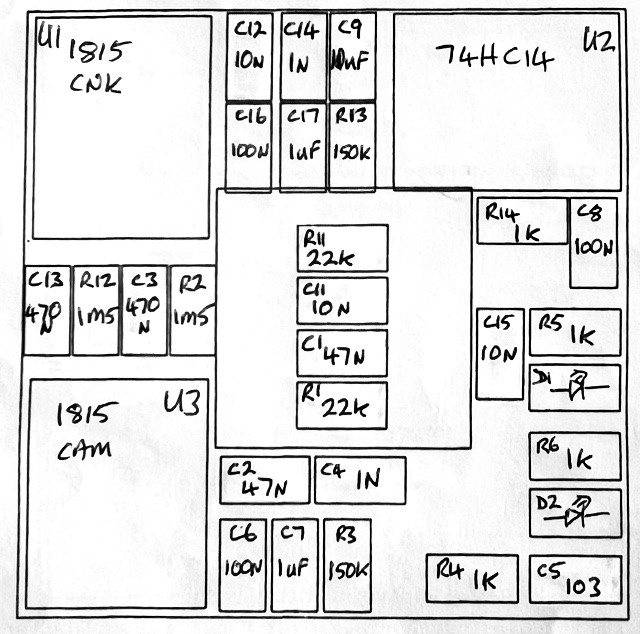 U1
1815
CNK
C12
10N
C14
1N
C9
10uF
74HC14
U2
C16
100N
C17
1uF
R13
150K
R14
1K
C8
100N
R11
22K
C11
10N
C1
47N
R1
22K
C13
470
N
R12
1M5
C3
470
N
R2
1M5
C15
10N
R5
1K
D1
1815
CAM
U3
R6
1K
D2
C2
47N
C4
1N
C6
100N
C7
1uF
R3
150K
R4
1K
C5
103